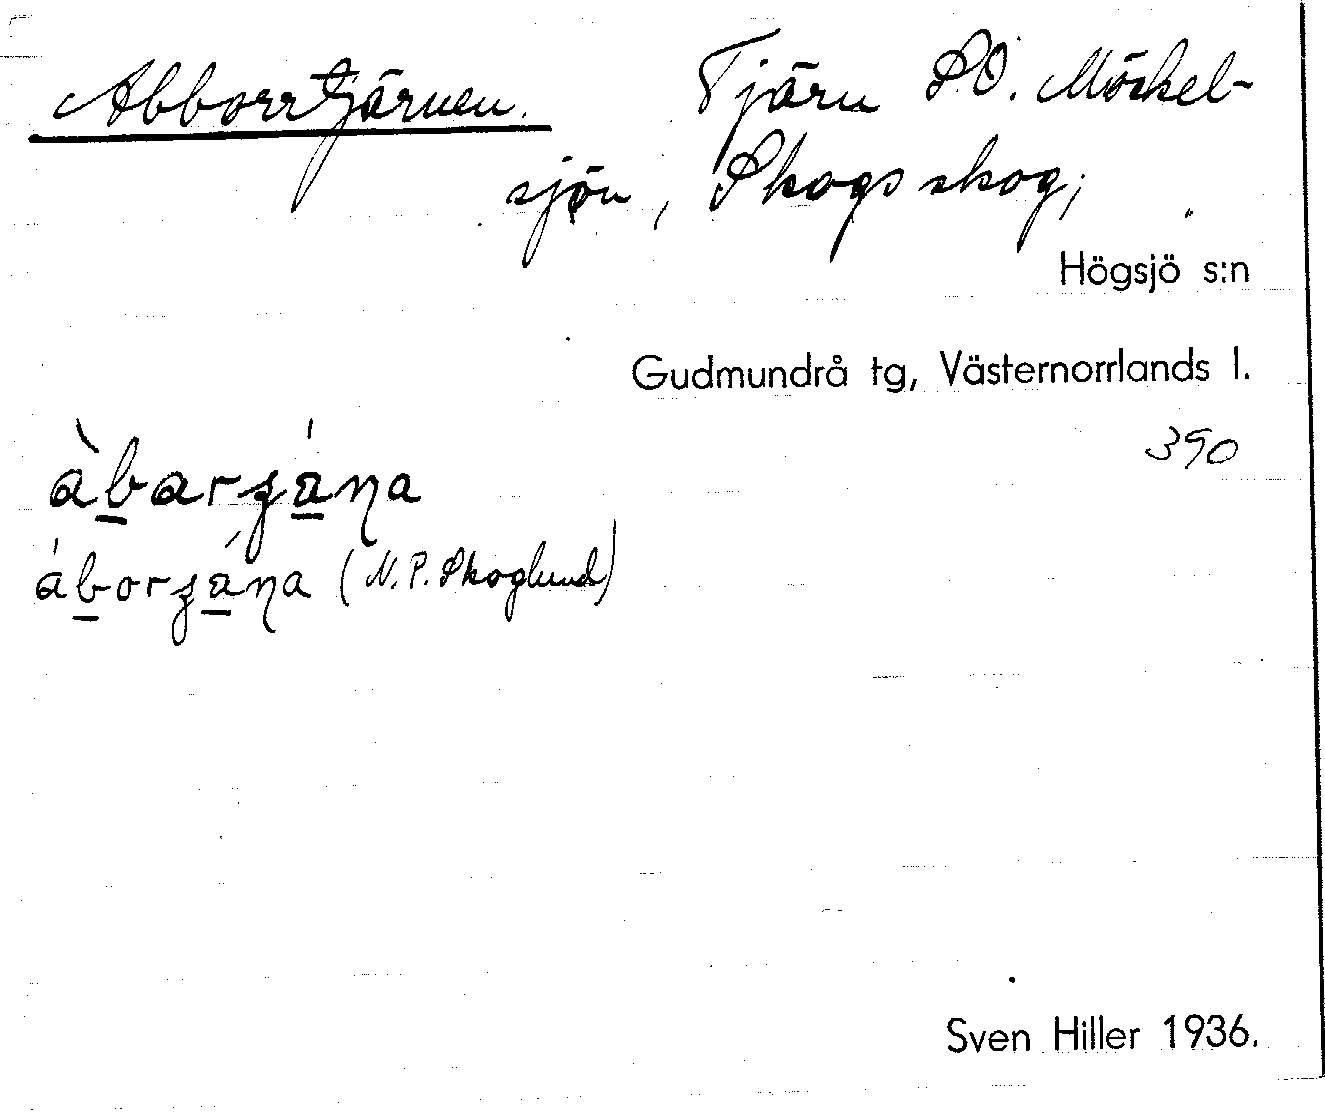 Abborrtjärnen. Tjärn SO. Möckel-
sjön, Skogs skog;
Högsjö s:n
Gudmundrå tg, Västernorrlands l.
390
(N. P. Skoglund)
Sven Hiller 1936.